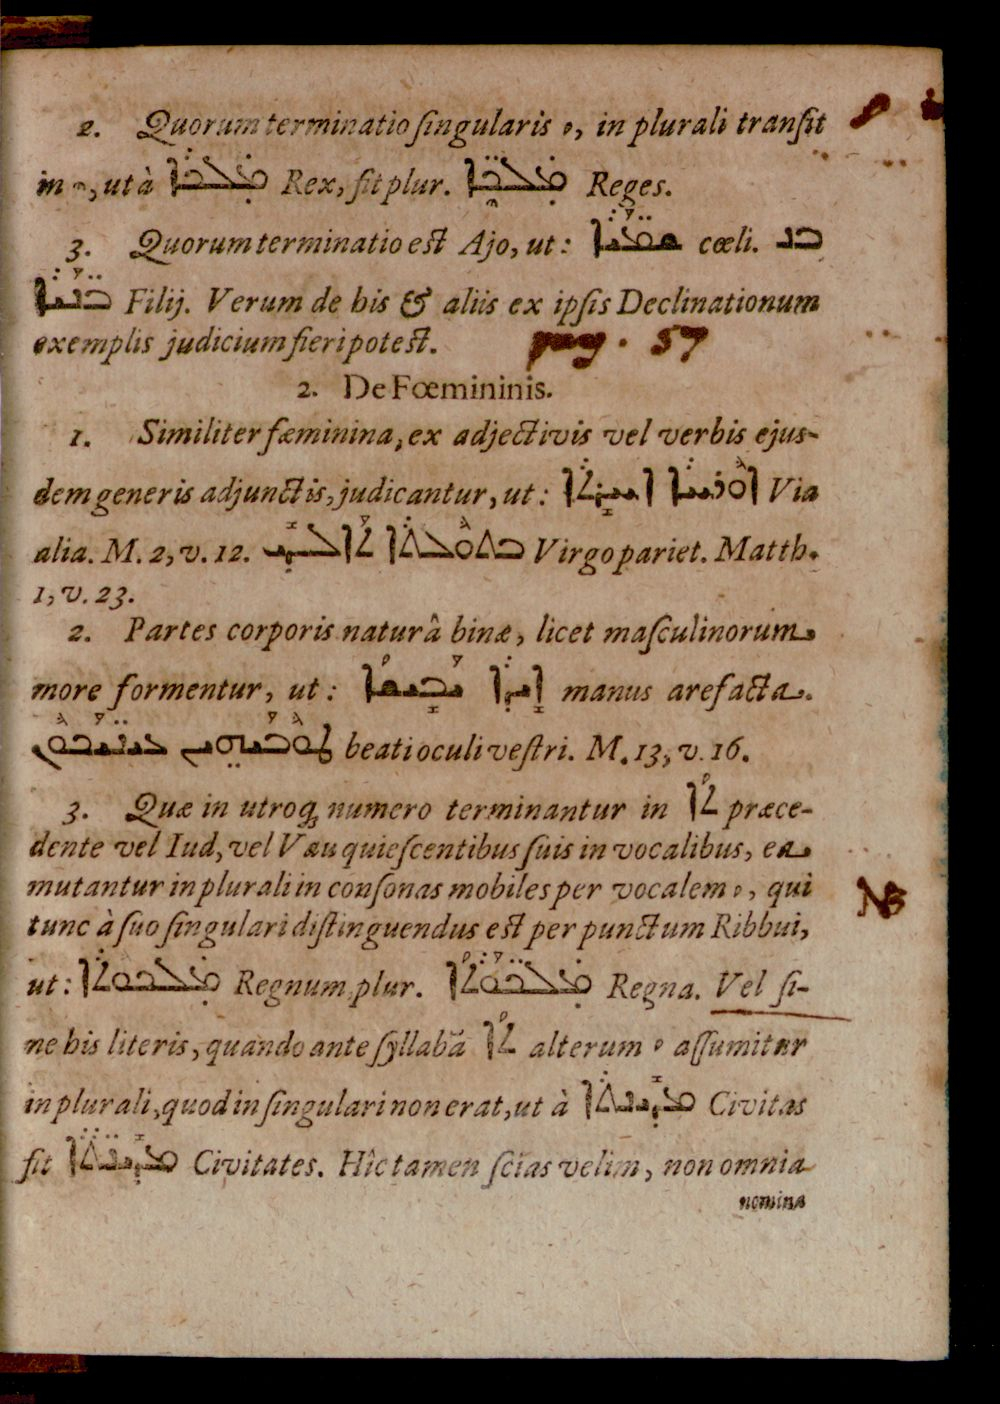 2. Quorum terminatio ſingularis ܳ, in plurali tranſit
in ܶ, ut à ܡܰܠܟܳܐ Rex, fit plur. ܡܰܠܟ̈ܶܐ Reges.
3. Quorum terminatio eſt Ajo, ut: ܫܡܰܝ̈ܳܐ cœli. ܒܢܰ
ܒܢܰܝ̈ܳܐ Filij. Verum de his & aliis ex ipſis Declinationum
exemplis judicium fieri poteſt. pag. 57
2. De Fœmininis.
1. Similiter fæminina, ex adjectivis vel verbis ejus-
dem generis adjunctis, judicantur, ut: ܐܘܪܚܐ ܐܚܪܬܐ Via
alia. M. 2, v. 12. ܒܬܘܠܬܐ ܬܐܠܕ Virgo pariet. Matth.
1, v. 23.
2. Partes corporis naturâ binæ, licet maſculinorum
more formentur, ut: ܐܝܕܐ ܝܒܝܫܐ manus arefacta.
ܛܘܒܝܗܝܢ ܥܝܢ̈ܝܟܘܢ beati oculi veſtri. M. 13, v. 16.
3. Quæ in utroq; numero terminantur in ܬܳܐ præce-
dente vel Iud, vel Vau quieſcentibus ſuis in vocalibus, ea
mutantur in plurali in conſonas mobiles per vocalem ܳ, qui
tunc à ſuo ſingulari diſtinguendus eſt per punctum Ribbui,
ut: ܡܠܟܘܬܐ Regnum plur. ܡܠܟ̈ܘܬܐ Regna. Vel ſi-
ne his literis, quando ante ſyllabã ܬܳܐ alterum ܳ aſſumitur
in plurali, quod in ſingulari non erat, ut à ܡܕܝܢܬܐ Civitas
fit ܡܕܝܢ̈ܬܐ Civitates. Hîc tamen ſcias velim, non omnia
nomina
NB